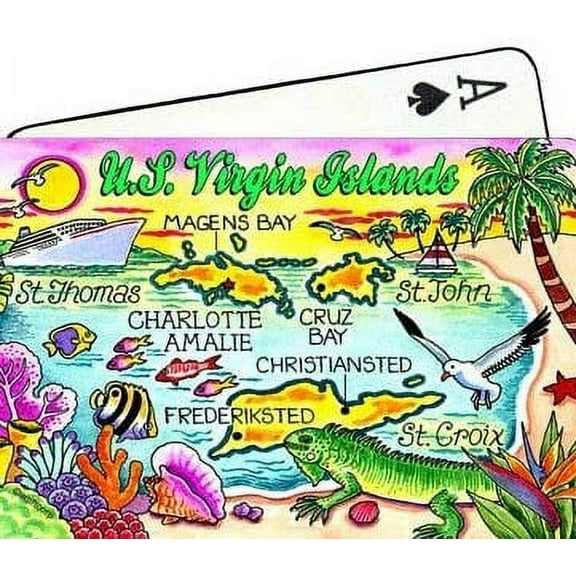 A
U.S. Virgin Islands
MAGENS BAY
St. Thomas
St. John
CHARLOTTE
AMALIE
CRUZ
BAY
CHRISTIANSTED
FREDERIKSTED
St. Croix